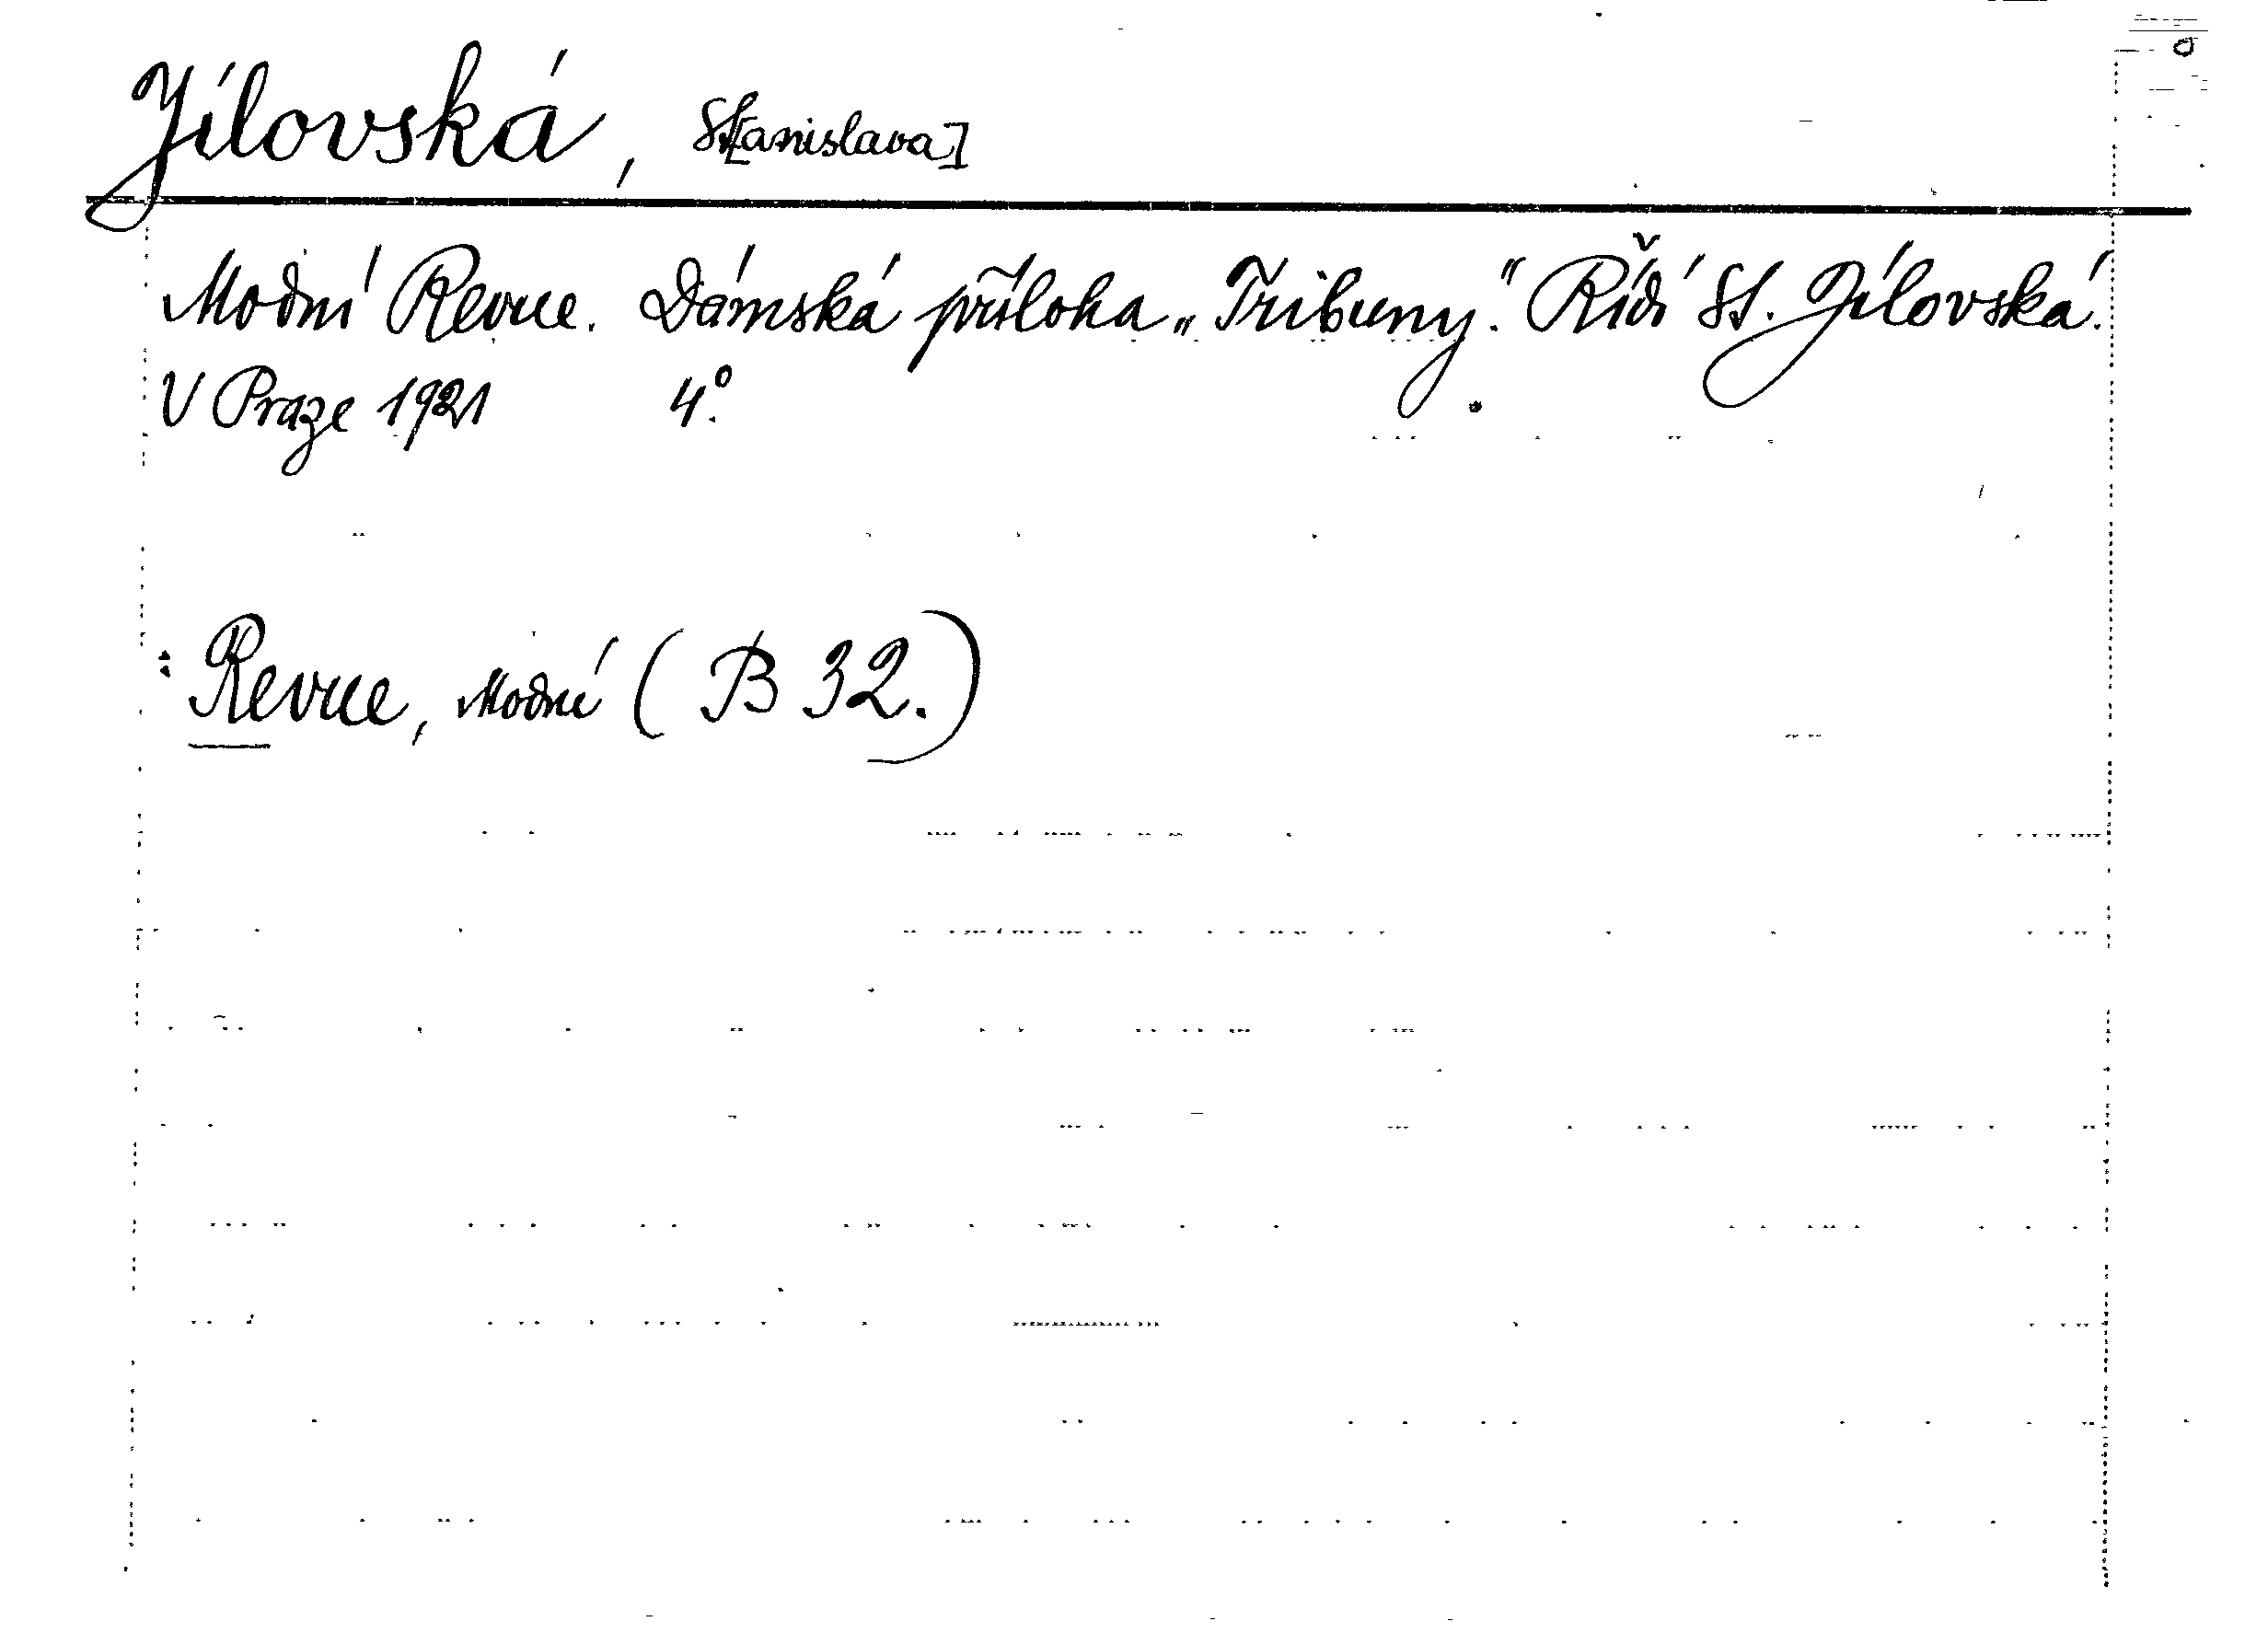 Jílovská, St[anislava]
Modní Revue. Dámská příloha „Tribuny." Řídí St. Jílovská.
V Praze 1921 4°.
: Revue, Modní (B 32.)